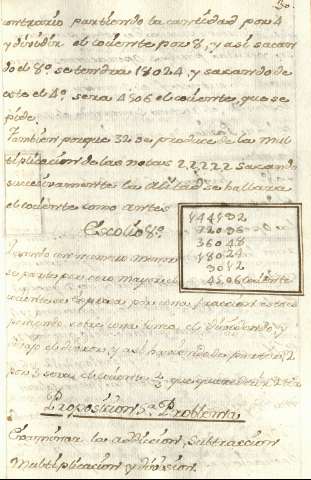 30.
contrario partiendo la cantidad por 4
y dividir el cociente por 8, y asi sacan
do el 8º se tendra 18024, y sacando de
este el 4º sera 4506 el cociente, que se
pide.
Tambien porque 32 se produce de la mul
tiplicacion de las notas 22222 sacando
succesivamente la mitad se hallara
el cociente como antes
Escolio 8º
144192
72096
36048
18024
9012
4506 cociente
numero menor
se parte por otro mayor el
cociente se expresa por una fraccion
poniendo sobre una linea el dividendo, y
bajo el divisor, y asi
por 3 sera el cociente 2/3 que
Proposicion 5ª Problema
Examinar la addicion, subtraccion
Multiplicacion y division.